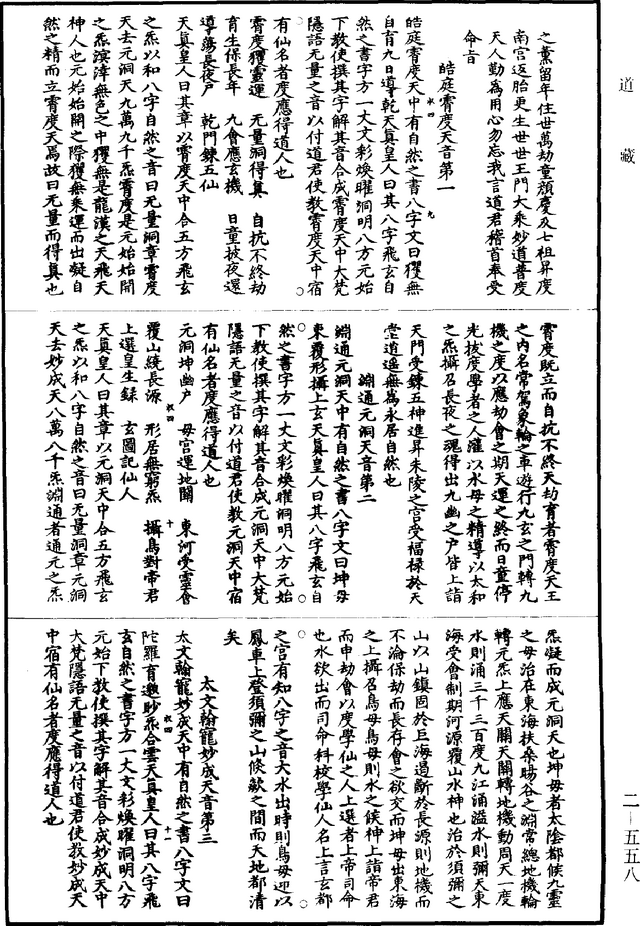 道藏
之黨留年住世萬劫童顏慶及七祖昇度
南宮返胎更生世世王門大乘妙道普度
天人勤為用心勿忘我言道君稽首奉受
命旨
皓庭霄度天音第一
皓庭霄度天中有自然之書八字文曰玃無
自育九日導乾天真皇人曰其八字飛玄自
然之書字方一丈文彩煥曜洞明八方元始
下教使撰其字解其音合成霄度天中大梵
隱語無量之音以付道君使教霄度天中宿
有仙名者度應得道人也
霄度玃靈運 无量洞得真 自抗不終劫
育生保長年 九會應玄機 日童披夜還
導蕩長夜戶 乾門鍊五仙
天真皇人曰其章以霄度天中合五方飛玄
之炁以和八字自然之音曰无量洞章霄度
天去元洞天九萬九千炁霄度是元始始開
之炁濱涬無色之中玃無是龍漢之天飛天
神人也元始始開之際玃無乘運而出凝自
然之精而立霄度天焉故曰无量而得真也
霄度既立而自抗不終天劫育者霄度天王
之內名常駕象輪之車遊行九玄之門轉九
機之度以應劫會之期天運之終而日童停
光拔度學者之人灌以水母之精導以太和
之炁攝召長夜之魂得出九幽之戶皆上詣
天門受鍊五神進昇朱陵之宮受福祿於天
堂逍遥無為永居自然也
淵通元洞天音第二
淵通元洞天中有自然之書八字文曰坤母
東覆形攝上玄天真皇人曰其八字飛玄自
然之書字方一丈文彩煥曜洞明八方元始
下教使撰其字解其音合成元洞天中大梵
隱語無量之音以付道君使教元洞天中宿
有仙名者度應得道人也
元洞坤幽戶 母宮運地關 東河受靈會
覆山繞長源 形居無窮炁 攝鳥對帝君
上選皇生録 玄圖記仙人
天真皇人曰其章以元洞天中合五方飛玄
之炁以和八字自然之音曰无量洞章元洞
天去妙成天八萬八千炁淵通者通元之炁
炁凝而成元洞天也坤母者太陰都候九靈
之母治在東海扶桑暘谷之淵常總地機輪
轉元炁上應天關天關轉地機動周天一度
水則涌三千三百度九江涌溢水則彌天東
海受會制期河源覆山水神也治於須彌之
山以山鎮固於巨海過斷於長源則地機而
不淪保劫而長存會之欲交而坤母出東海
之上攝召鳥母鳥母則水之候神上詣帝君
而申劫會以度學仙之人上選者上帝司命
也水欲出而司命科校學仙人名上言玄都
之宮有知八字之音大水出時則鳥母迎以
鳳車上登須彌之山倏歘之間而天地都清
矣
太文翰寵妙成天音第三
太文翰寵妙成天中有自然之書八字文曰
陀羅育邈眇炁合雲天真皇人曰其八字飛
玄自然之書字方一丈文彩煥曜洞明八方
元始下教使撰其字解其音合成妙成天中
大梵隱語无量之音以付道君使教妙成天
中宿有仙名者度應得道人也
二—五五八